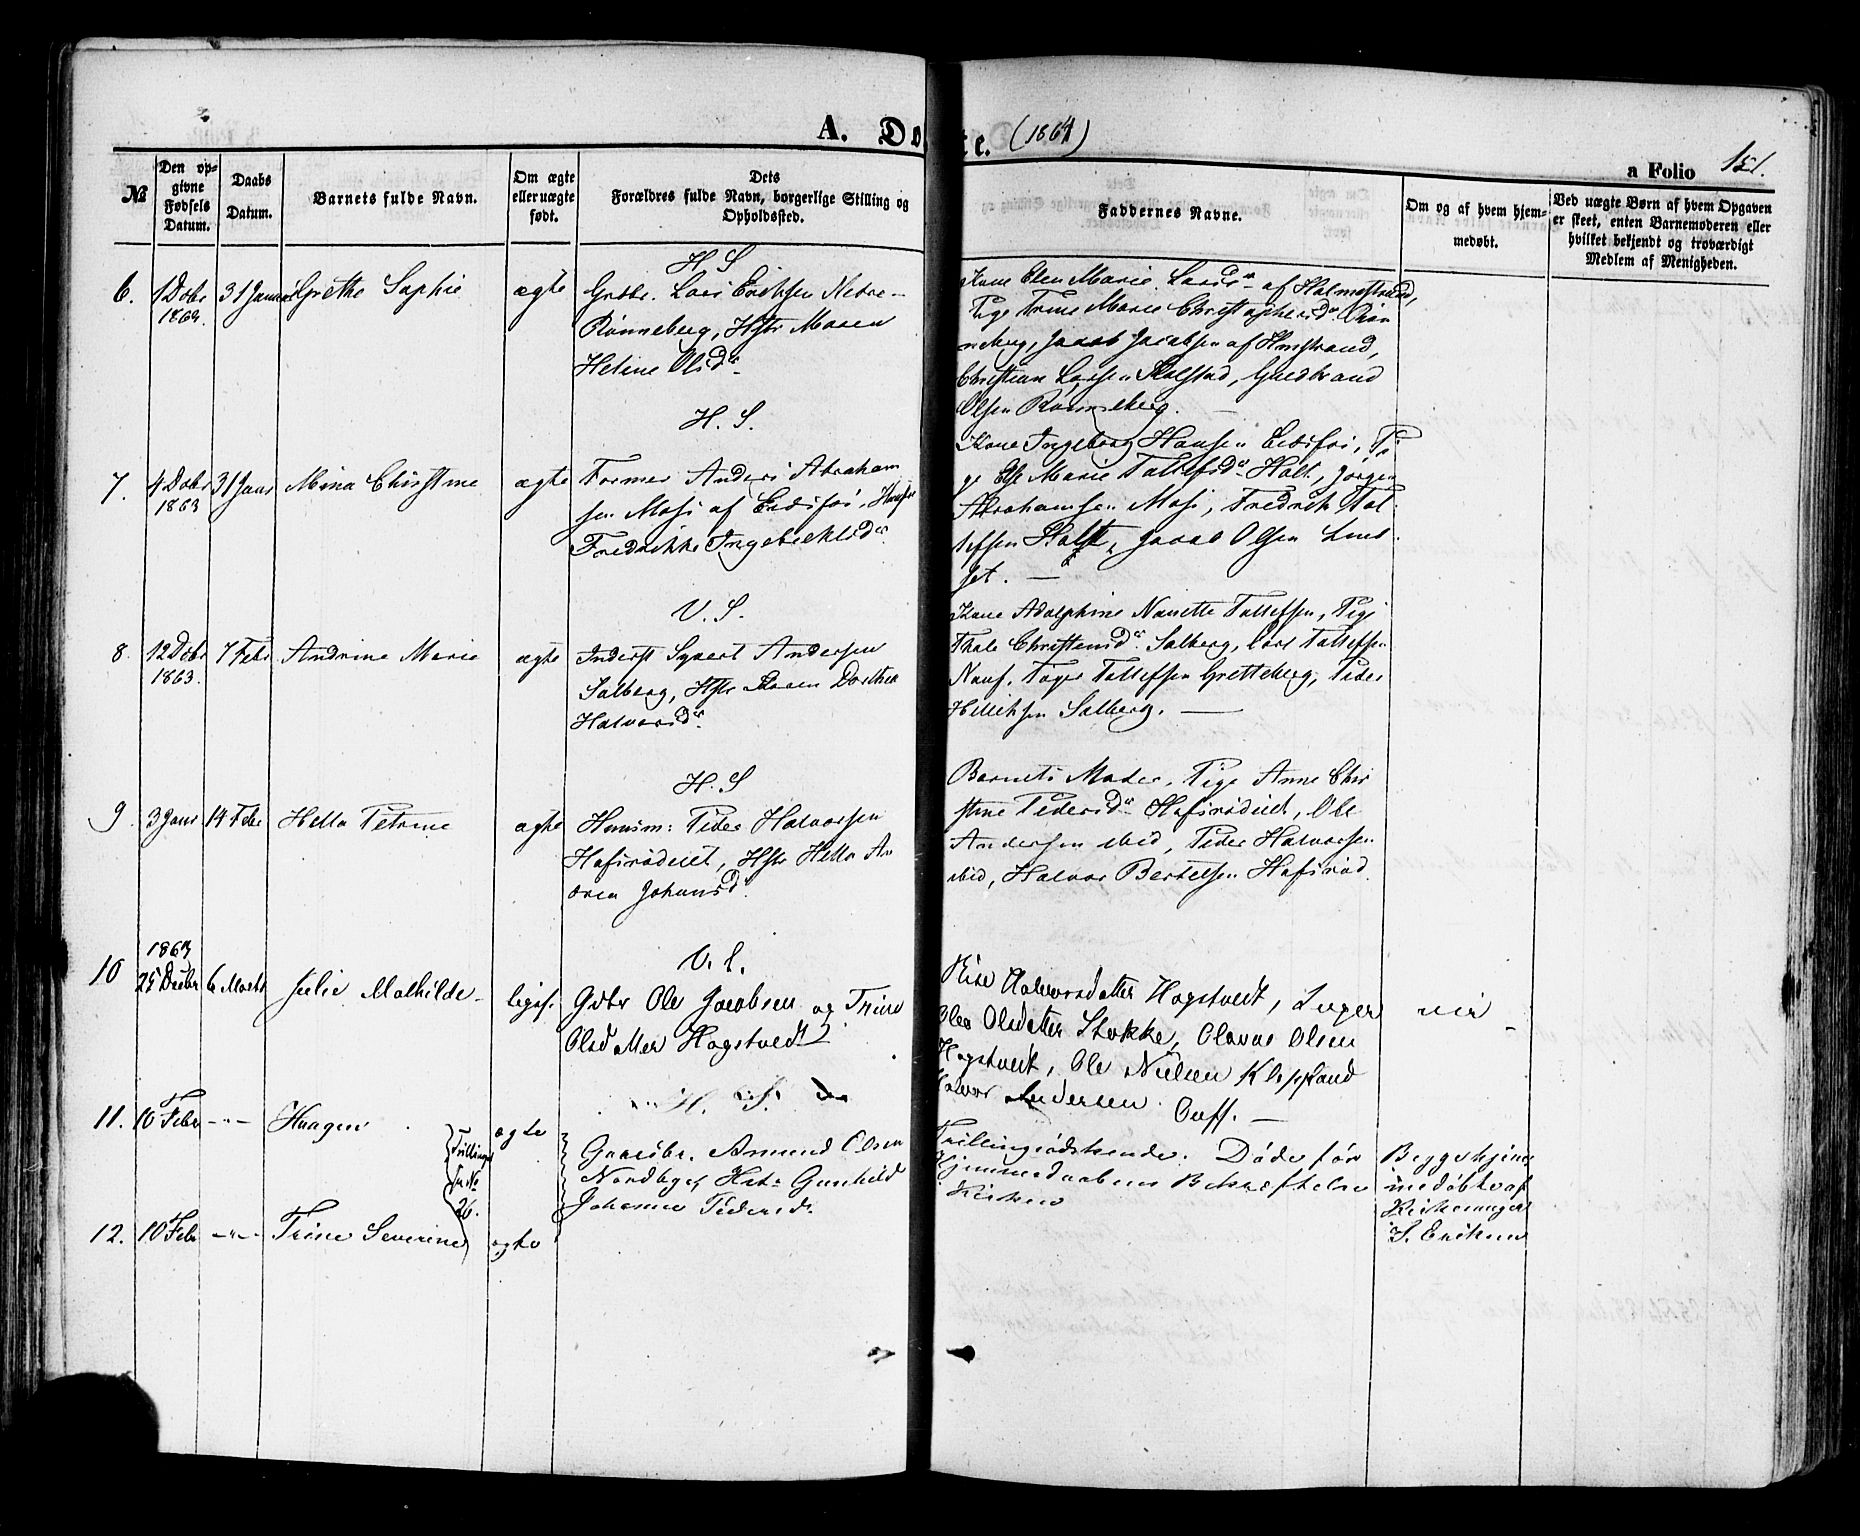 A. Do te. (1864)
a Folio 151.
№
Den op-
givne
Fødsels
Datum.
Daabs
Datum.
Barnets fulde Navn.
Om ægte
eller uægte
født.
Dets
Forældres fulde Navn, borgerlige Stilling og
Opholdssted.
Faddernes Navne.
Om og af hvem hjem-
medøbt.
Ved uægte Børn af hvem Opgaven
er skeet, enten Barnemoderen eller
hvilket bekjendt og troværdigt
Medlem af Menigheden.
H. S
6. 1 Dcbr 31 Januar Grethe Sophie ægte
1863.
Grdbr. Lars Eriksen Nedre
Rønneberg, Hstr Maren
Helene Olsdr
Kone Elen Marie Larsdr af Holmestrand,
Pige Trine Marie Christophersdr Røn
neberg, Jacob Jacobsen af Hmstrand,
Christian Larsen Skolstad, Guldbrand
Olsen Rønneberg.
H. S.
7. 4 Dcbr 31 Januar Mina Christine ægte
1863
Former Anders Abraham
sen Moss af Eidsfos, Hustr
Fredrikke Ingebrektsdr
Kone Ingeborg Hansen Eidsfos, Pi
ge Else Marie Tollefsdr Holt, Jørgen
Abrahamsen Moss, Fredrik Tol
lefsen Holt, Jacob Olsen
set.
V. S.
8. 12 Dcbr 7 Febr Andrine Marie ægte
1863.
Inderst Syvert Andersen
Solberg, Hstr Maren Dorthea
Halvorsdr
Kone Adolphine Nanette Tollefsen, Pige
Thale Christensdr Solberg, Lars Tollefsen
Nauf, Toger Tollefsen Gretteberg, Peder
Solberg.
H. S
9. 3 Janr 14 Febr Hella Petrine ægte
Huusm: Peder Halvorsen
Hafsrødeiet, Hstr Hella An
drea Johansdr
Barnets Moder, Pige Anne Chri
stine Pedersdr Hafsrødeiet, Ole
Andersen ibid, Peder Halvorsen
ibid, Halvor Bertelsen Hafsrød
V. S.
1863
10 25 Decbr 6 Marts Julie Mathilde
Gdbr Ole Jacobsen og Trine
Olsdatter Hogstvedt
Halvorsdatter Hogstvedt, Inger
Olea Olsdatter Stokke, Olavus Olsen
Hogstvedt, Ole Nielsen Kleppland
Halvor Andersen
H. S.
11. 10 Febr -"- Haagen ægte
Trillinger
see No
26.
Gaardbr. Amund Olsen
Nordby, Hstr Gunhild
Johanne Pedersdr
Trillingsødskende. Døde før
Hjemmedaabens Bekræftelse
i Kirken
Begge hjem
medøbte af
Kirkesanger
S. Eriksen
12. 10 Febr -"- Trine Severine ægte